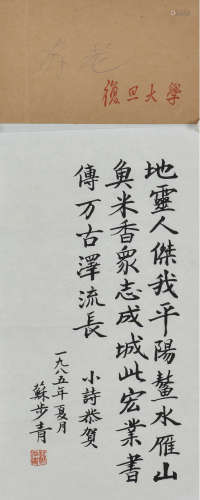 復旦大學
地靈人傑我平陽鼇水雁山
魚米香眾志成城此宏業書
傳万古澤流長
小詩恭賀
一九八五年夏月
蘇步青